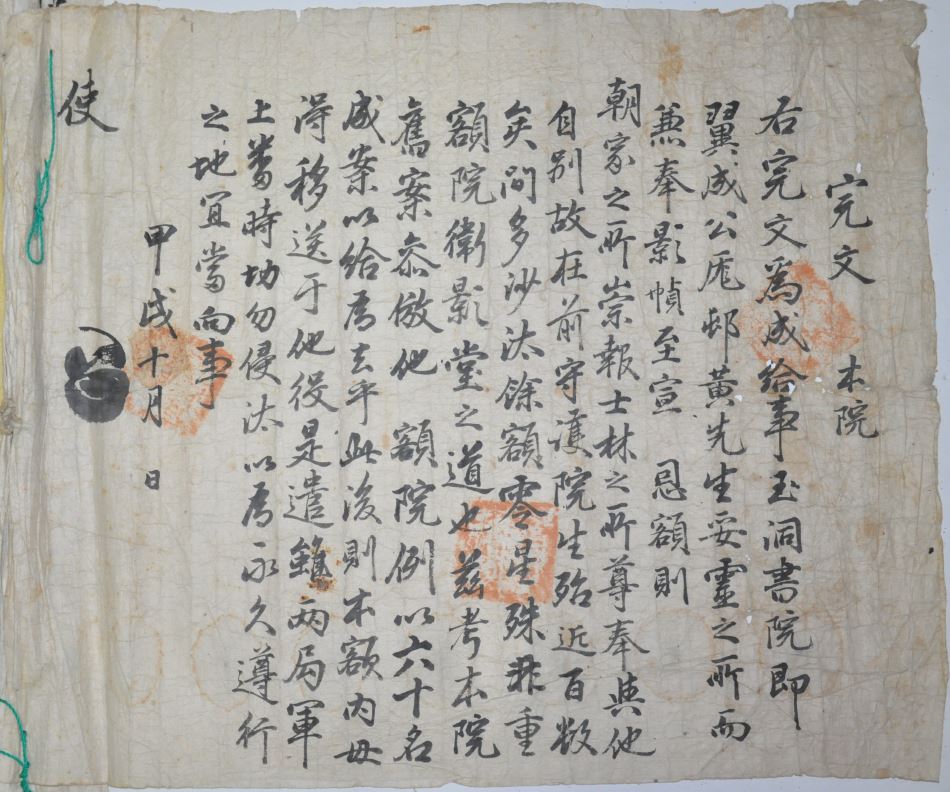 完文 本院
右完文爲成給事玉洞書院即
翼成公厖邨黃先生妥靈之所而
兼奉影幀至宣 恩額則
朝家之所崇報士林之所尊奉與他
自別故在前守護院生殆近百數
矣間多沙汰餘額零星殊非重
額院衛影堂之道也玆考本院
舊案叅倣他 額院例以六十名
成案以給爲去乎此後則本額內毋
得移送于他役是遣雖兩局軍
上番時切勿侵汰以爲永久遵行
之地宜當向事
甲戌十月 日
使